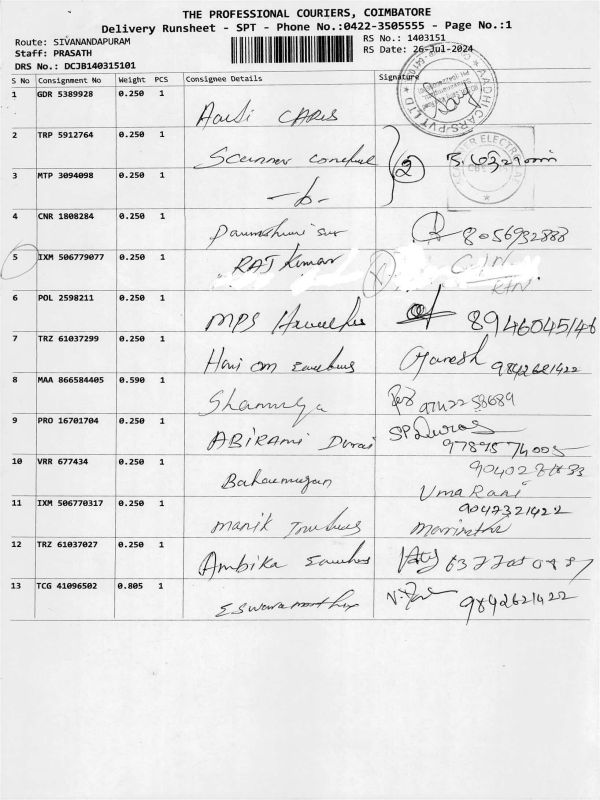 THE PROFESSIONAL COURIERS, COIMBATORE
Delivery Runsheet - SPT - Phone No.:0422-3505555 - Page No.:1
Route: SIVANANDAPURAM
RS No.: 1403151
Staff: PRASATH
RS Date: 26-Jul-2024
DRS No.: DCJB140315101
S No Consignment No Weight PCS Consignee Details Signature
AADHI CARS PVT LTD
1 GDR 5389928 0.250 1 CARS
2 TRP 5912764 0.250 1 Scanner 2
3 MTP 3094098 0.250 1
4 CNR 1808284 0.250 1 8056932888
5 IXM 506779077 0.250 1 RAJ Kumar
6 POL 2598211 0.250 1 MPS 8946045146
7 TRZ 61037299 0.250 1 Hari om Ganesh 9842621422
8 MAA 866584405 0.590 1 Shanmuga
9 PRO 16701704 0.250 1 ABIRAMI Durai SP Durai
9789574005
10 VRR 677434 0.250 1
Uma Rani
11 IXM 506770317 0.250 1 Manik 9047321422
12 TRZ 61037027 0.250 1 Ambika
13 TCG 41096502 0.805 1 Eswaramoorthy 9842621422